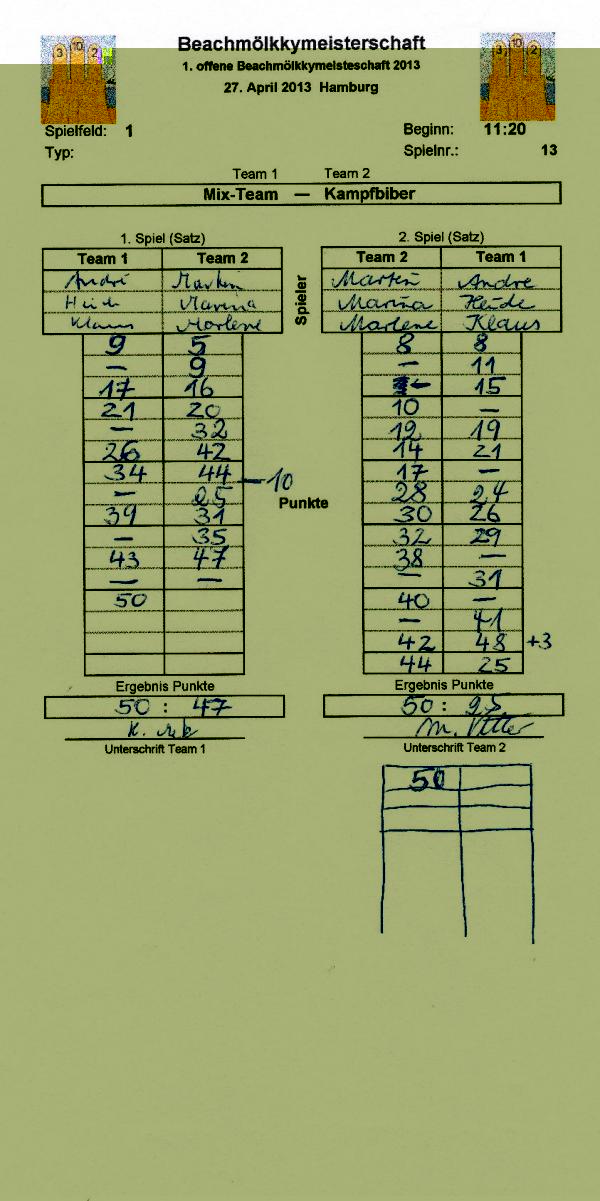 3 10 2
Beachmölkkymeisterschaft
3 10 2
1. offene Beachmölkkymeisteschaft 2013
27. April 2013 Hamburg
Spielfeld: 1
Beginn: 11:20
Typ:
Spielnr.: 13
Team 1 Team 2
Mix-Team — Kampfbiber
1. Spiel (Satz)
Team 1 Team 2
André Martin
Heide Marina
Klaus Marlene
9 5
— 9
17 16
21 20
— 32
26 42
34 44 — 10
— 25
39 31
— 35
43 47
— —
50
Ergebnis Punkte
50 : 47
Unterschrift Team 1
Spieler
Punkte
2. Spiel (Satz)
Team 2 Team 1
Martin Andre
Marina Heide
Marlene Klaus
8 8
— 11
— 15
10 —
12 19
14 21
17 —
28 24
30 26
32 29
38 —
— 31
40 —
— 41
42 48 +3
44 25
Ergebnis Punkte
50 : 25
Unterschrift Team 2
50